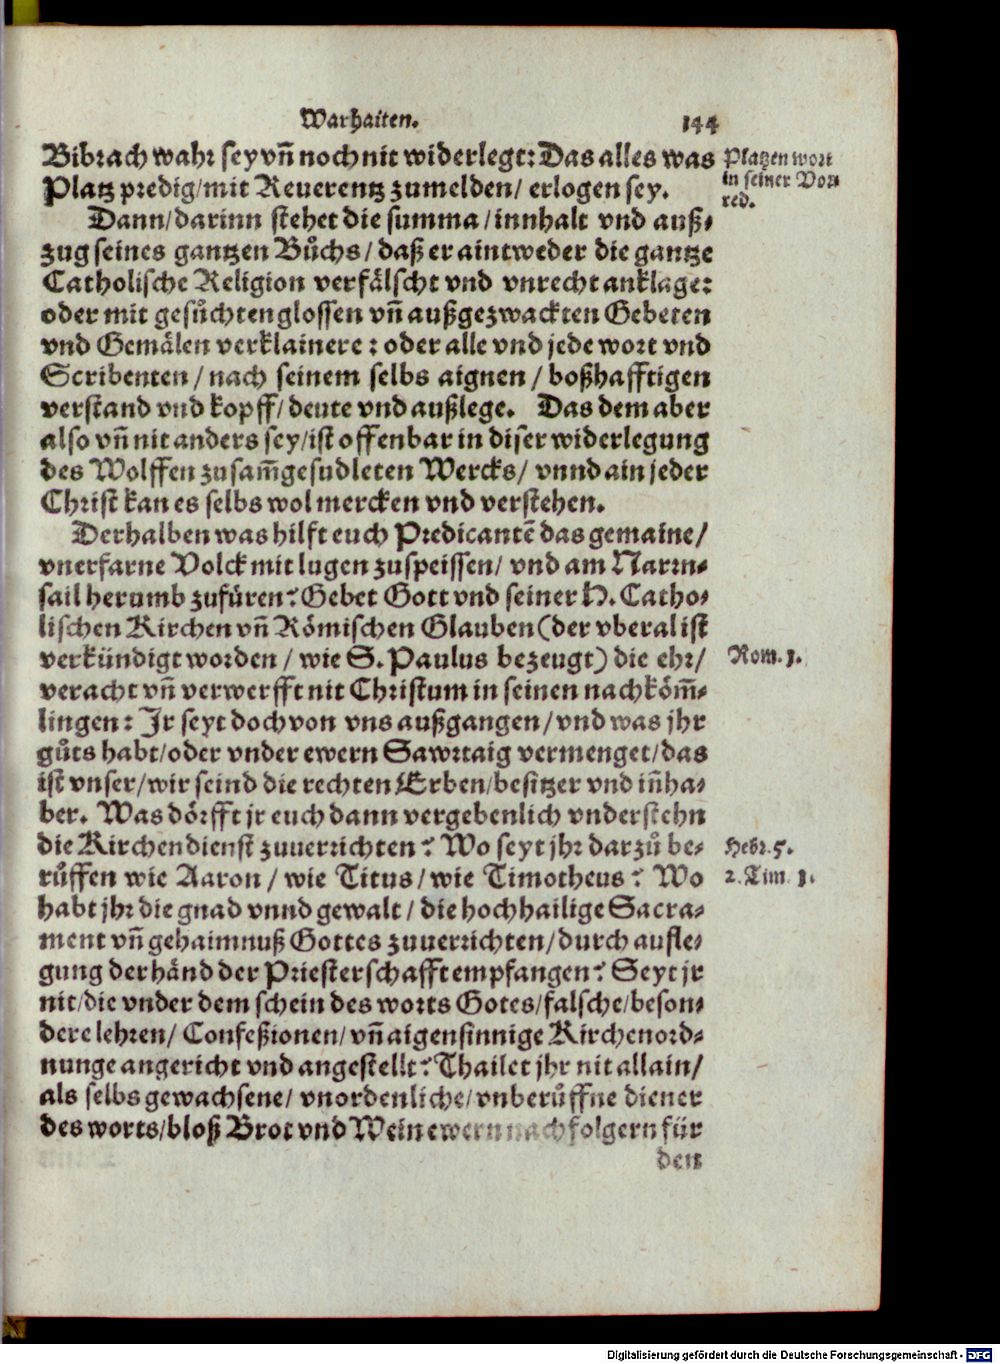 Warhaiten. 144
Bibrach wahr sey vn̄ noch nit widerlegt: Das alles was
Platz predig/ mit Reuerentz zumelden/ erlogen sey.
Platzen wort
in seiner Vor⸗
red.
Dann/ darinn stehet die summa/ innhalt vnd auß⸗
zug seines gantzen Bůchs/ daß er aintweder die gantze
Catholische Religion verfälscht vnd vnrecht anklage:
oder mit gesůchten glossen vn̄ außgezwackten Gebeten
vnd Gemälen verklainere: oder alle vnd jede wort vnd
Scribenten/ nach seinem selbs aignen/ boßhafftigen
verstand vnd kopff/ deute vnd außlege. Das dem aber
also vn̄ nit anders sey/ ist offenbar in diser widerlegung
des Wolffen zusam̄gesudleten Wercks/ vnnd ain jeder
Christ kan es selbs wol mercken vnd verstehen.
Derhalben was hilft euch Predicantē das gemaine/
vnerfarne Volck mit lugen zuspeissen/ vnd am Narrn⸗
sail herumb zufüren? Gebet Gott vnd seiner H. Catho⸗
lischen Kirchen vn̄ Römischen Glauben (der vberal ist
verkündigt worden/ wie S. Paulus bezeugt) die ehr/
Rom. 1.
veracht vn̄ verwerfft nit Christum in seinen nachköm̄⸗
lingen: Jr seyt doch von vns außgangen/ vnd was jhr
gůts habt/ oder vnder ewern Sawrtaig vermenget/ das
ist vnser/ wir seind die rechten Erben/ besitzer vnd in̄ha⸗
ber. Was dörfft jr euch dann vergebenlich vnderstehn
die Kirchendienst zuuerrichten? Wo seyt jhr darzů be⸗
Hebr. 5.
růffen wie Aaron/ wie Titus/ wie Timotheus? Wo
2. Tim. 1.
habt jhr die gnad vnnd gewalt/ die hochhailige Sacra⸗
ment vn̄ gehaimnuß Gottes zuuerrichten/ durch aufle⸗
gung der händ der Priesterschafft empfangen? Seyt jr
nit/ die vnder dem schein des worts Gotes/ falsche/ beson⸗
dere lehren/ Confeßionen/ vn̄ aigensinnige Kirchenord⸗
nunge angericht vnd angestellt? Thailet jhr nit allain/
als selbs gewachsene/ vnordenliche/ vnberůffne diener
des worts/ bloß Brot vnd Wein ewern nachfolgern für
den
Digitalisierung gefördert durch die Deutsche Forschungsgemeinschaft - DFG